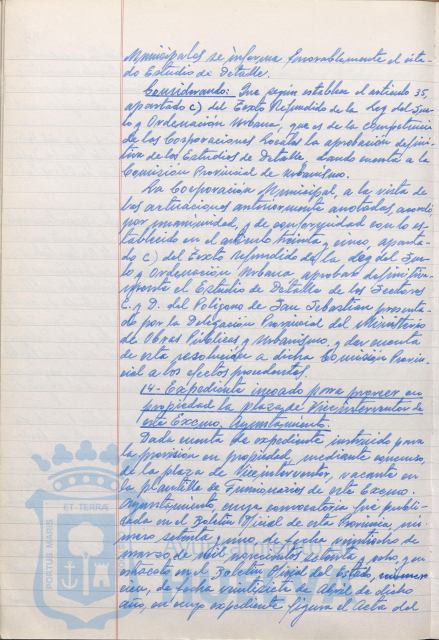 Municipales se informa favorablemente el cita-
do Estudio de Detalle.
Considerando: Que según establece el artículo 35,
apartado C) del Texto Refundido de la Ley del Sue-
lo y Ordenación Urbana, que es de la competencia
de las Corporaciones Locales la aprobación defini-
tiva de los Estudios de Detalle, dando cuenta a la
Comisión Provincial de Urbanismo.
La Corporación Municipal, a la vista de
las actuaciones anteriormente anotadas, acordó
por unanimidad, y de conformidad con lo es-
tablecido en el artículo treinta y cinco, aparta-
do C) del Texto Refundido de la Ley del Sue-
lo y Ordenación Urbana, aprobar definitiva-
mente el Estudio de Detalle de los Sectores
C. y D. del Polígono de San Sebastián presenta-
do por la Delegación Provincial del Ministerio
de Obras Públicas y Urbanismo, y dar cuenta
de esta resolución a dicha Comisión Provin-
cial a los efectos procedentes.
14.- Expediente incoado para proveer en
propiedad la plaza de Viceinterventor de
este Excmo. Ayuntamiento.
Dada cuenta de expediente instruido para
la provisión en propiedad, mediante concurso,
de la plaza de Viceinterventor, vacante en
la plantilla de Funcionarios de este Excmo.
Ayuntamiento, cuya convocatoria fue publi-
cada en el Boletín Oficial de esta Provincia, nú-
mero setenta y uno, de fecha veintiocho de
marzo de mil novecientos setenta y ocho, y en
extracto en el Boletín Oficial del Estado, número
cien, de fecha veintisiete de Abril de dicho
año, en cuyo expediente figura el Acta del
PORTUS MARIS
ET TERRA